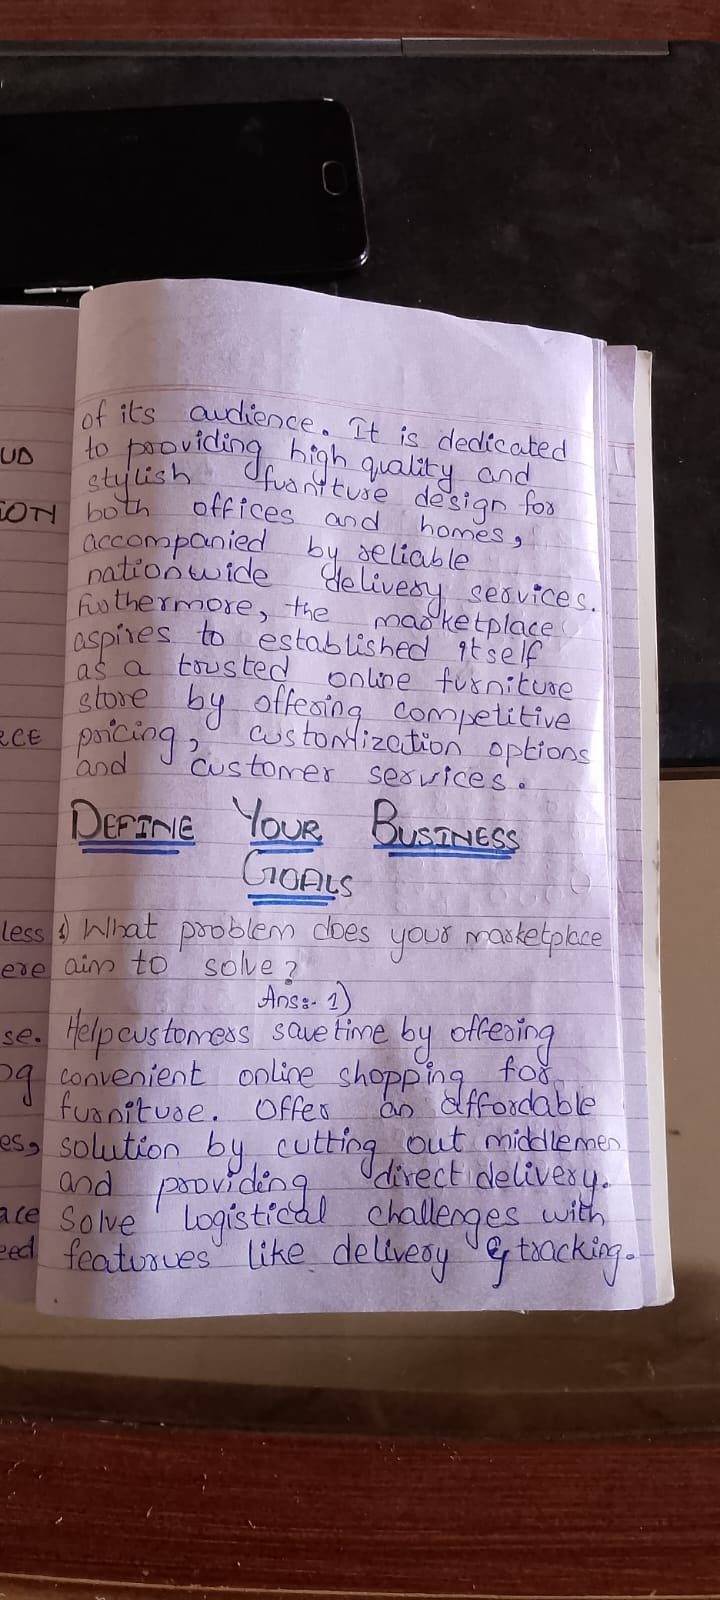 of its audience. It is dedicated
to providing high quality and
stylish furniture design for
both offices and homes,
accompanied by reliable
nationwide delivery services.
Furthermore, the marketplace
aspires to established itself
as a trusted online furniture
store by offering competitive
pricing, customization options
and customer services.
DEFINE YOUR BUSINESS
GOALS
1) What problem does your marketplace
aim to solve?
Ans:- 1)
Help customers save time by offering
convenient online shopping for
furniture. Offer an affordable
solution by cutting out middlemen
and providing direct delivery.
Solve logistical challenges with
featurues like delivery & tracking.
UD
ION
RCE
less
ere
se.
og
es,
ace
eed